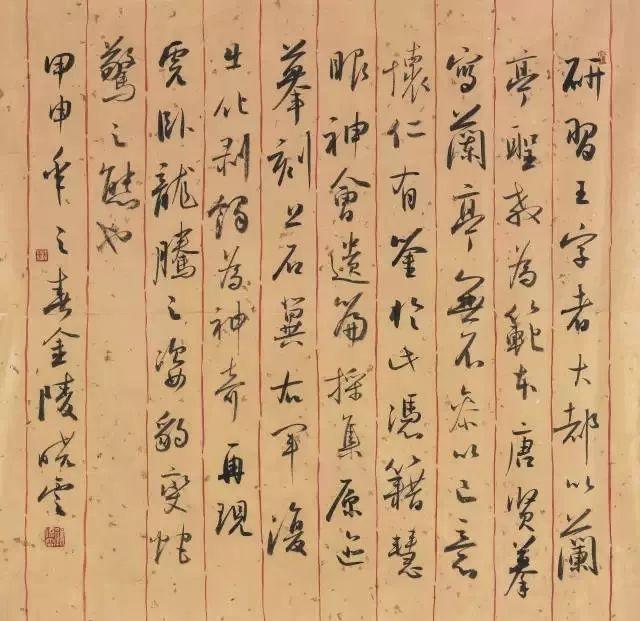 研習王字者大都以蘭
亭聖教為範本唐賢摹
寫蘭亭無不參以己意
懷仁有鉴於此憑籍慧
眼神會遺篇採集原迹
摹刻上石冀右军復
生化剥蝕為神奇再現
虎卧龍騰之姿豹变蛇
驚之態也
甲申年之春金陵晓雲